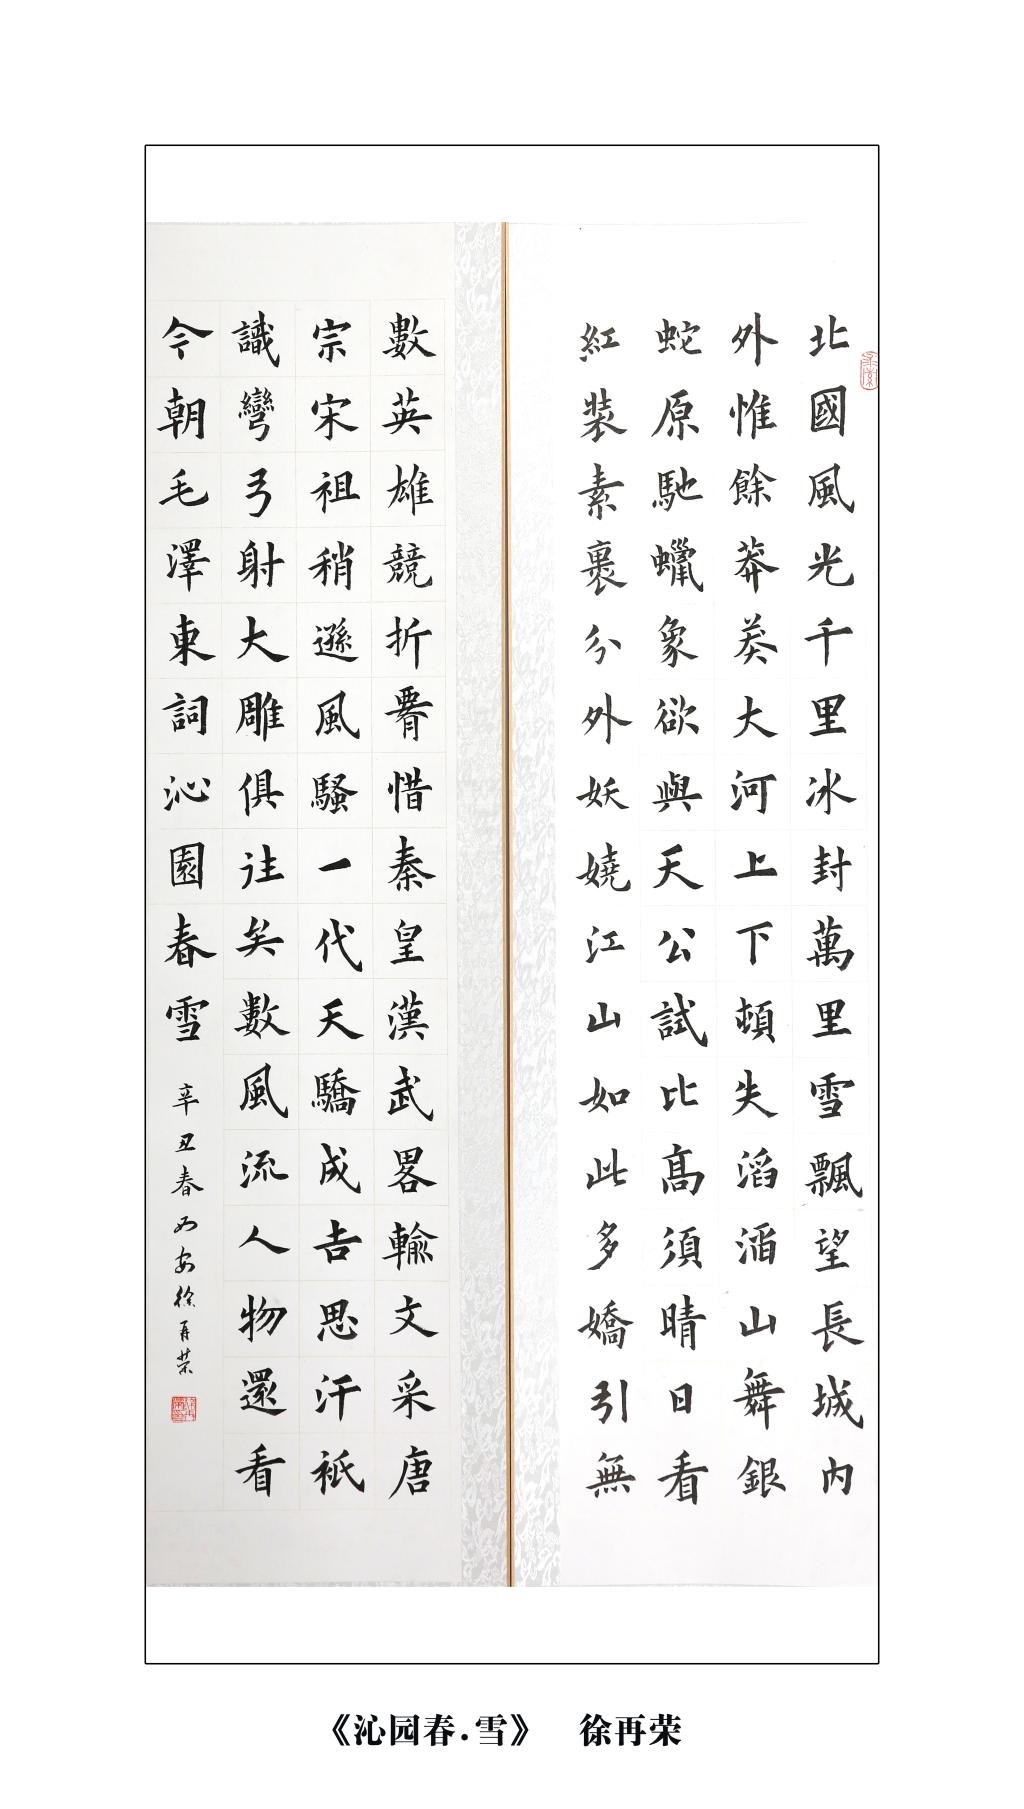 北國風光千里冰封萬里雪飄望長城内
外惟餘莽莽大河上下頓失滔滔山舞銀
蛇原馳蠟象欲與天公試比高須晴日看
紅裝素裹分外妖嬈江山如此多嬌引無
數英雄競折腰惜秦皇漢武畧輸文采唐
宗宋祖稍遜風騷一代天驕成吉思汗祇
識彎弓射大雕俱往矣數風流人物還看
今朝毛澤東詞沁園春雪
辛丑春西安徐再荣
《沁园春.雪》 徐再荣